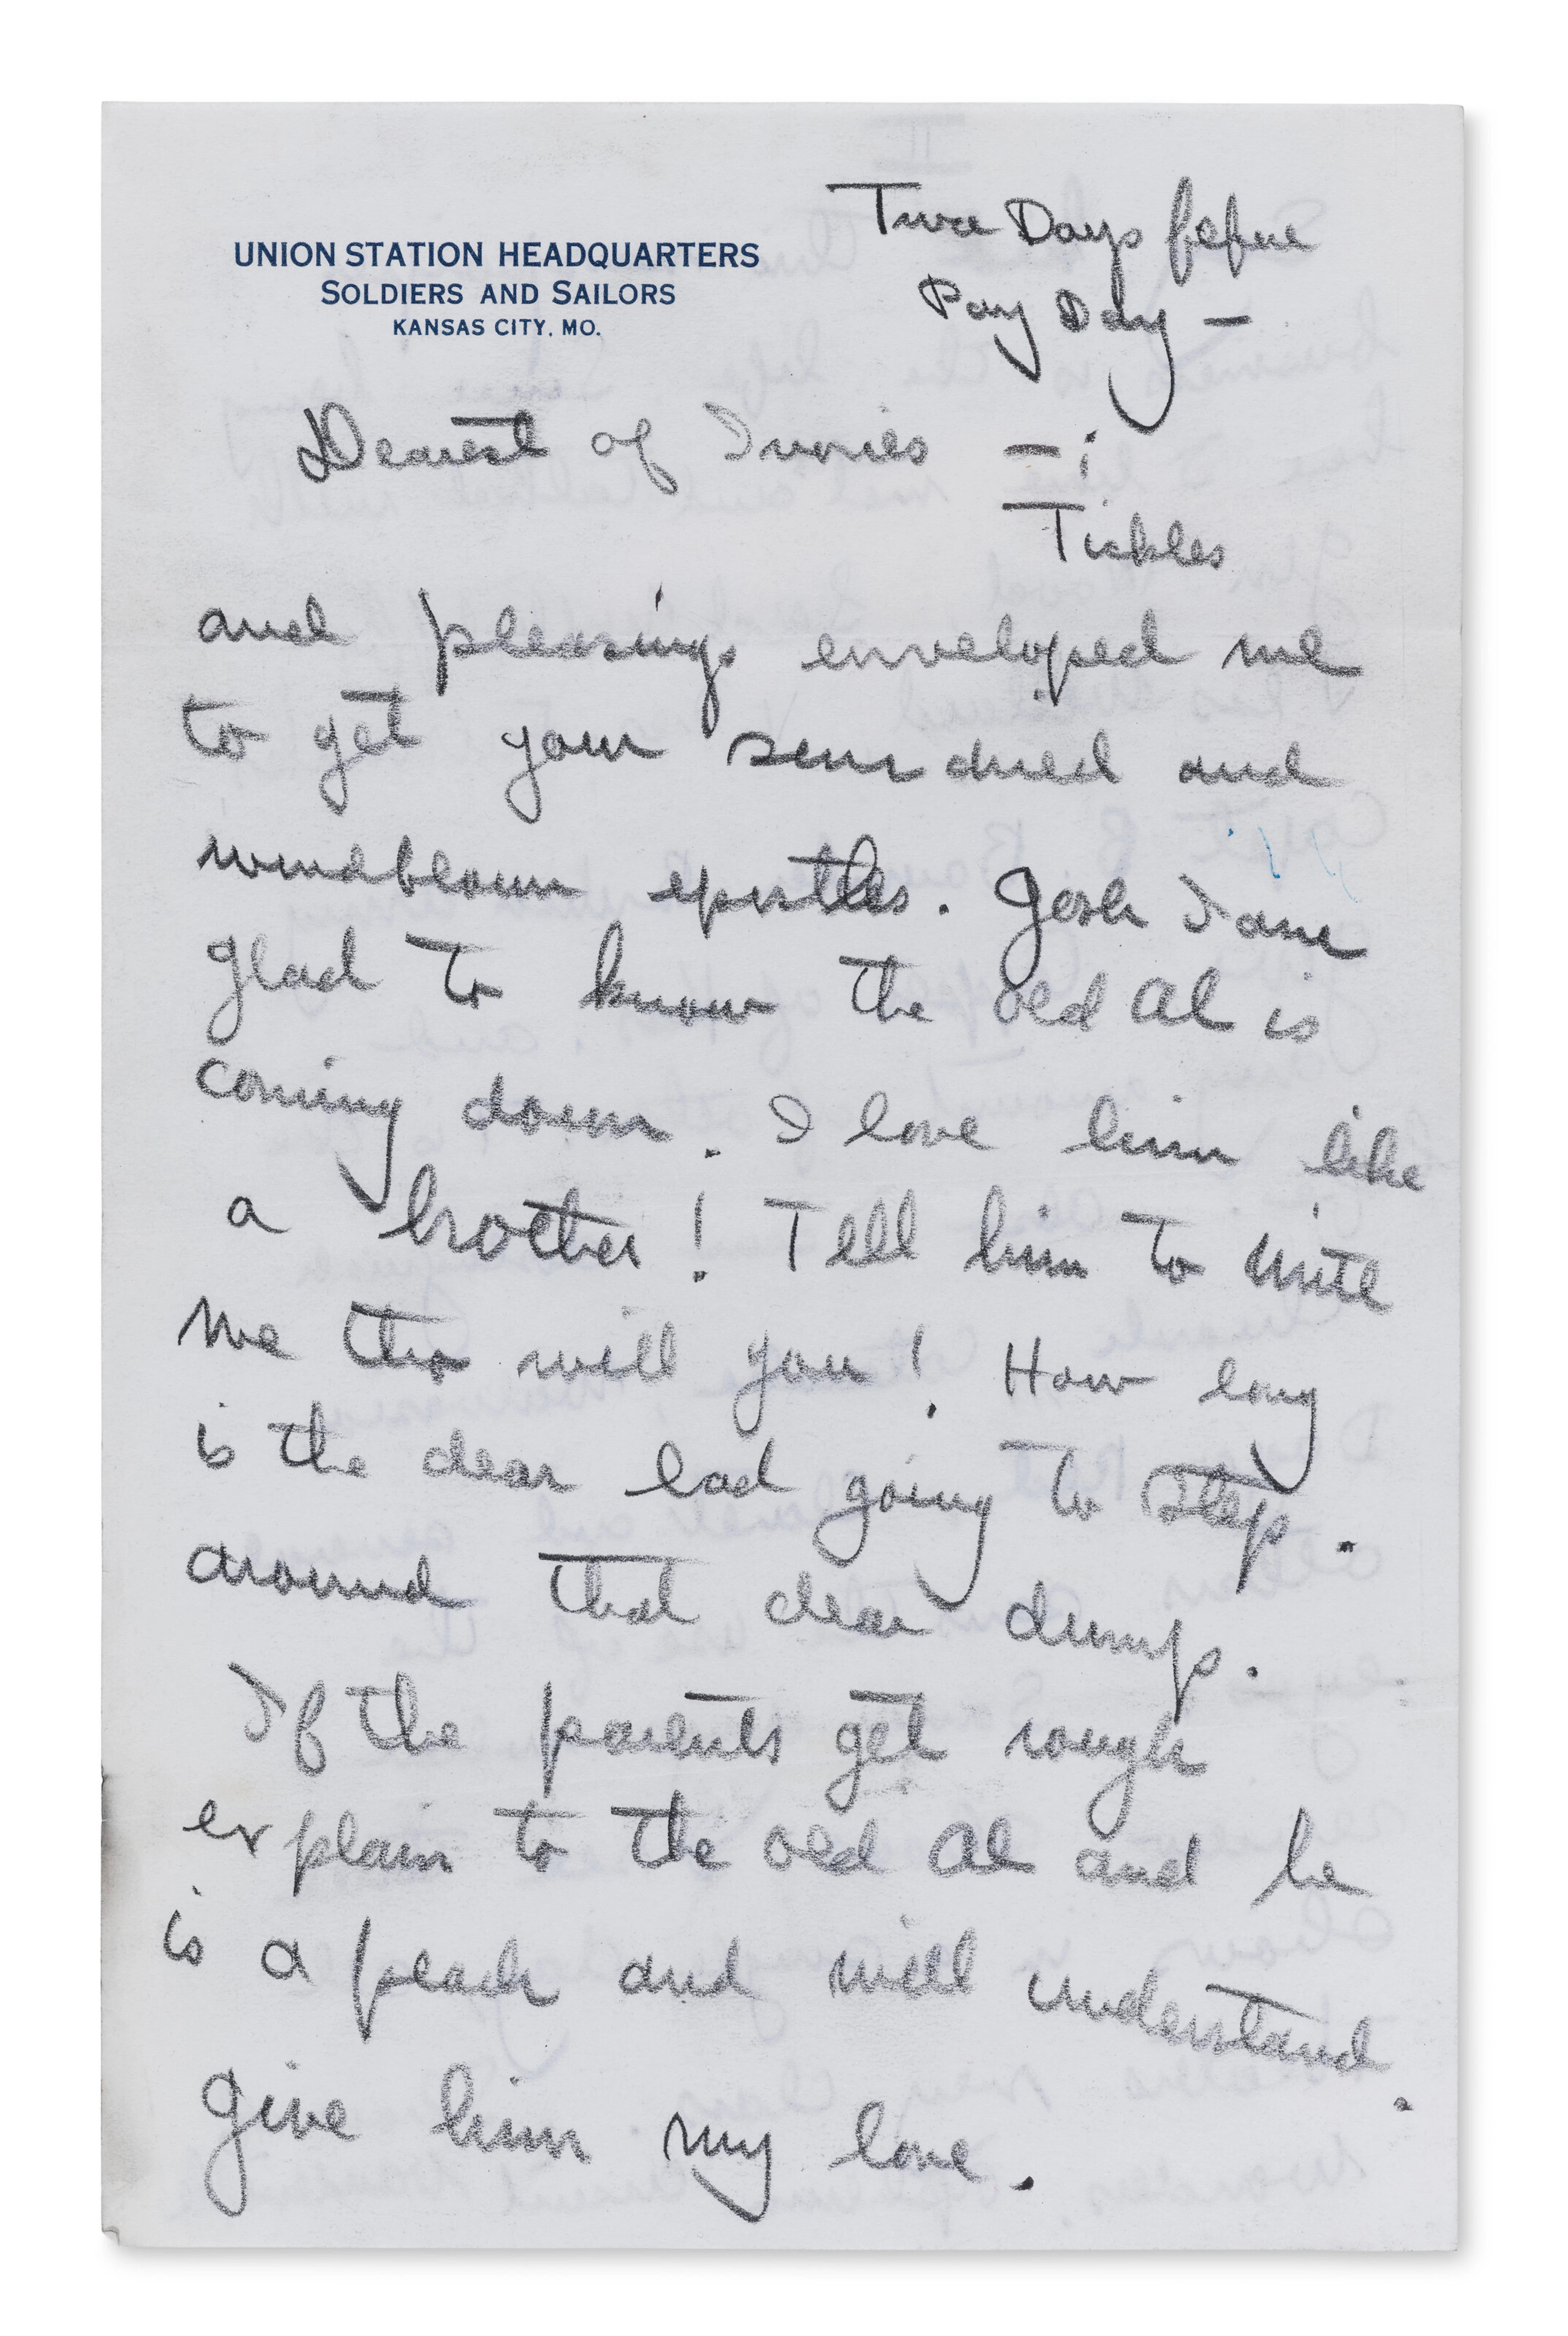 UNION STATION HEADQUARTERS
SOLDIERS AND SAILORS
KANSAS CITY, MO.
Two Days before
Pay Day —
Dearest of Ivories — :
Tickles
and pleasings enveloped me
to get your sun dried and
windblown epistles. Gosh I am
glad to know the old Al is
coming down. I love him like
a brother! Tell him to write
me tho will you! How long
is the dear lad going to step.
around that dear dump.
If the parents get rough
explain to the old Al and he
is a peach and will understand.
Give him my love.